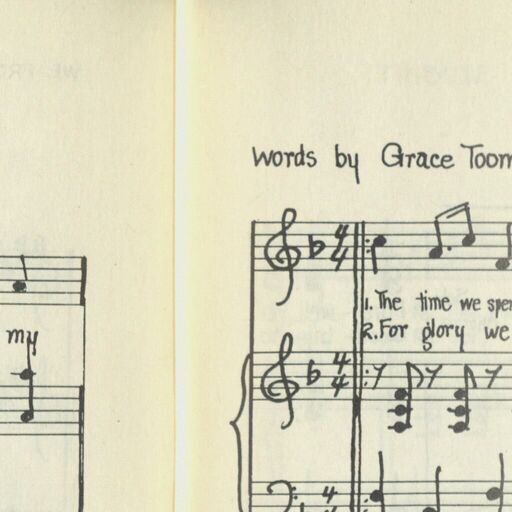 my
Words by Grace Toom
1. The time we spe
2. For glory we